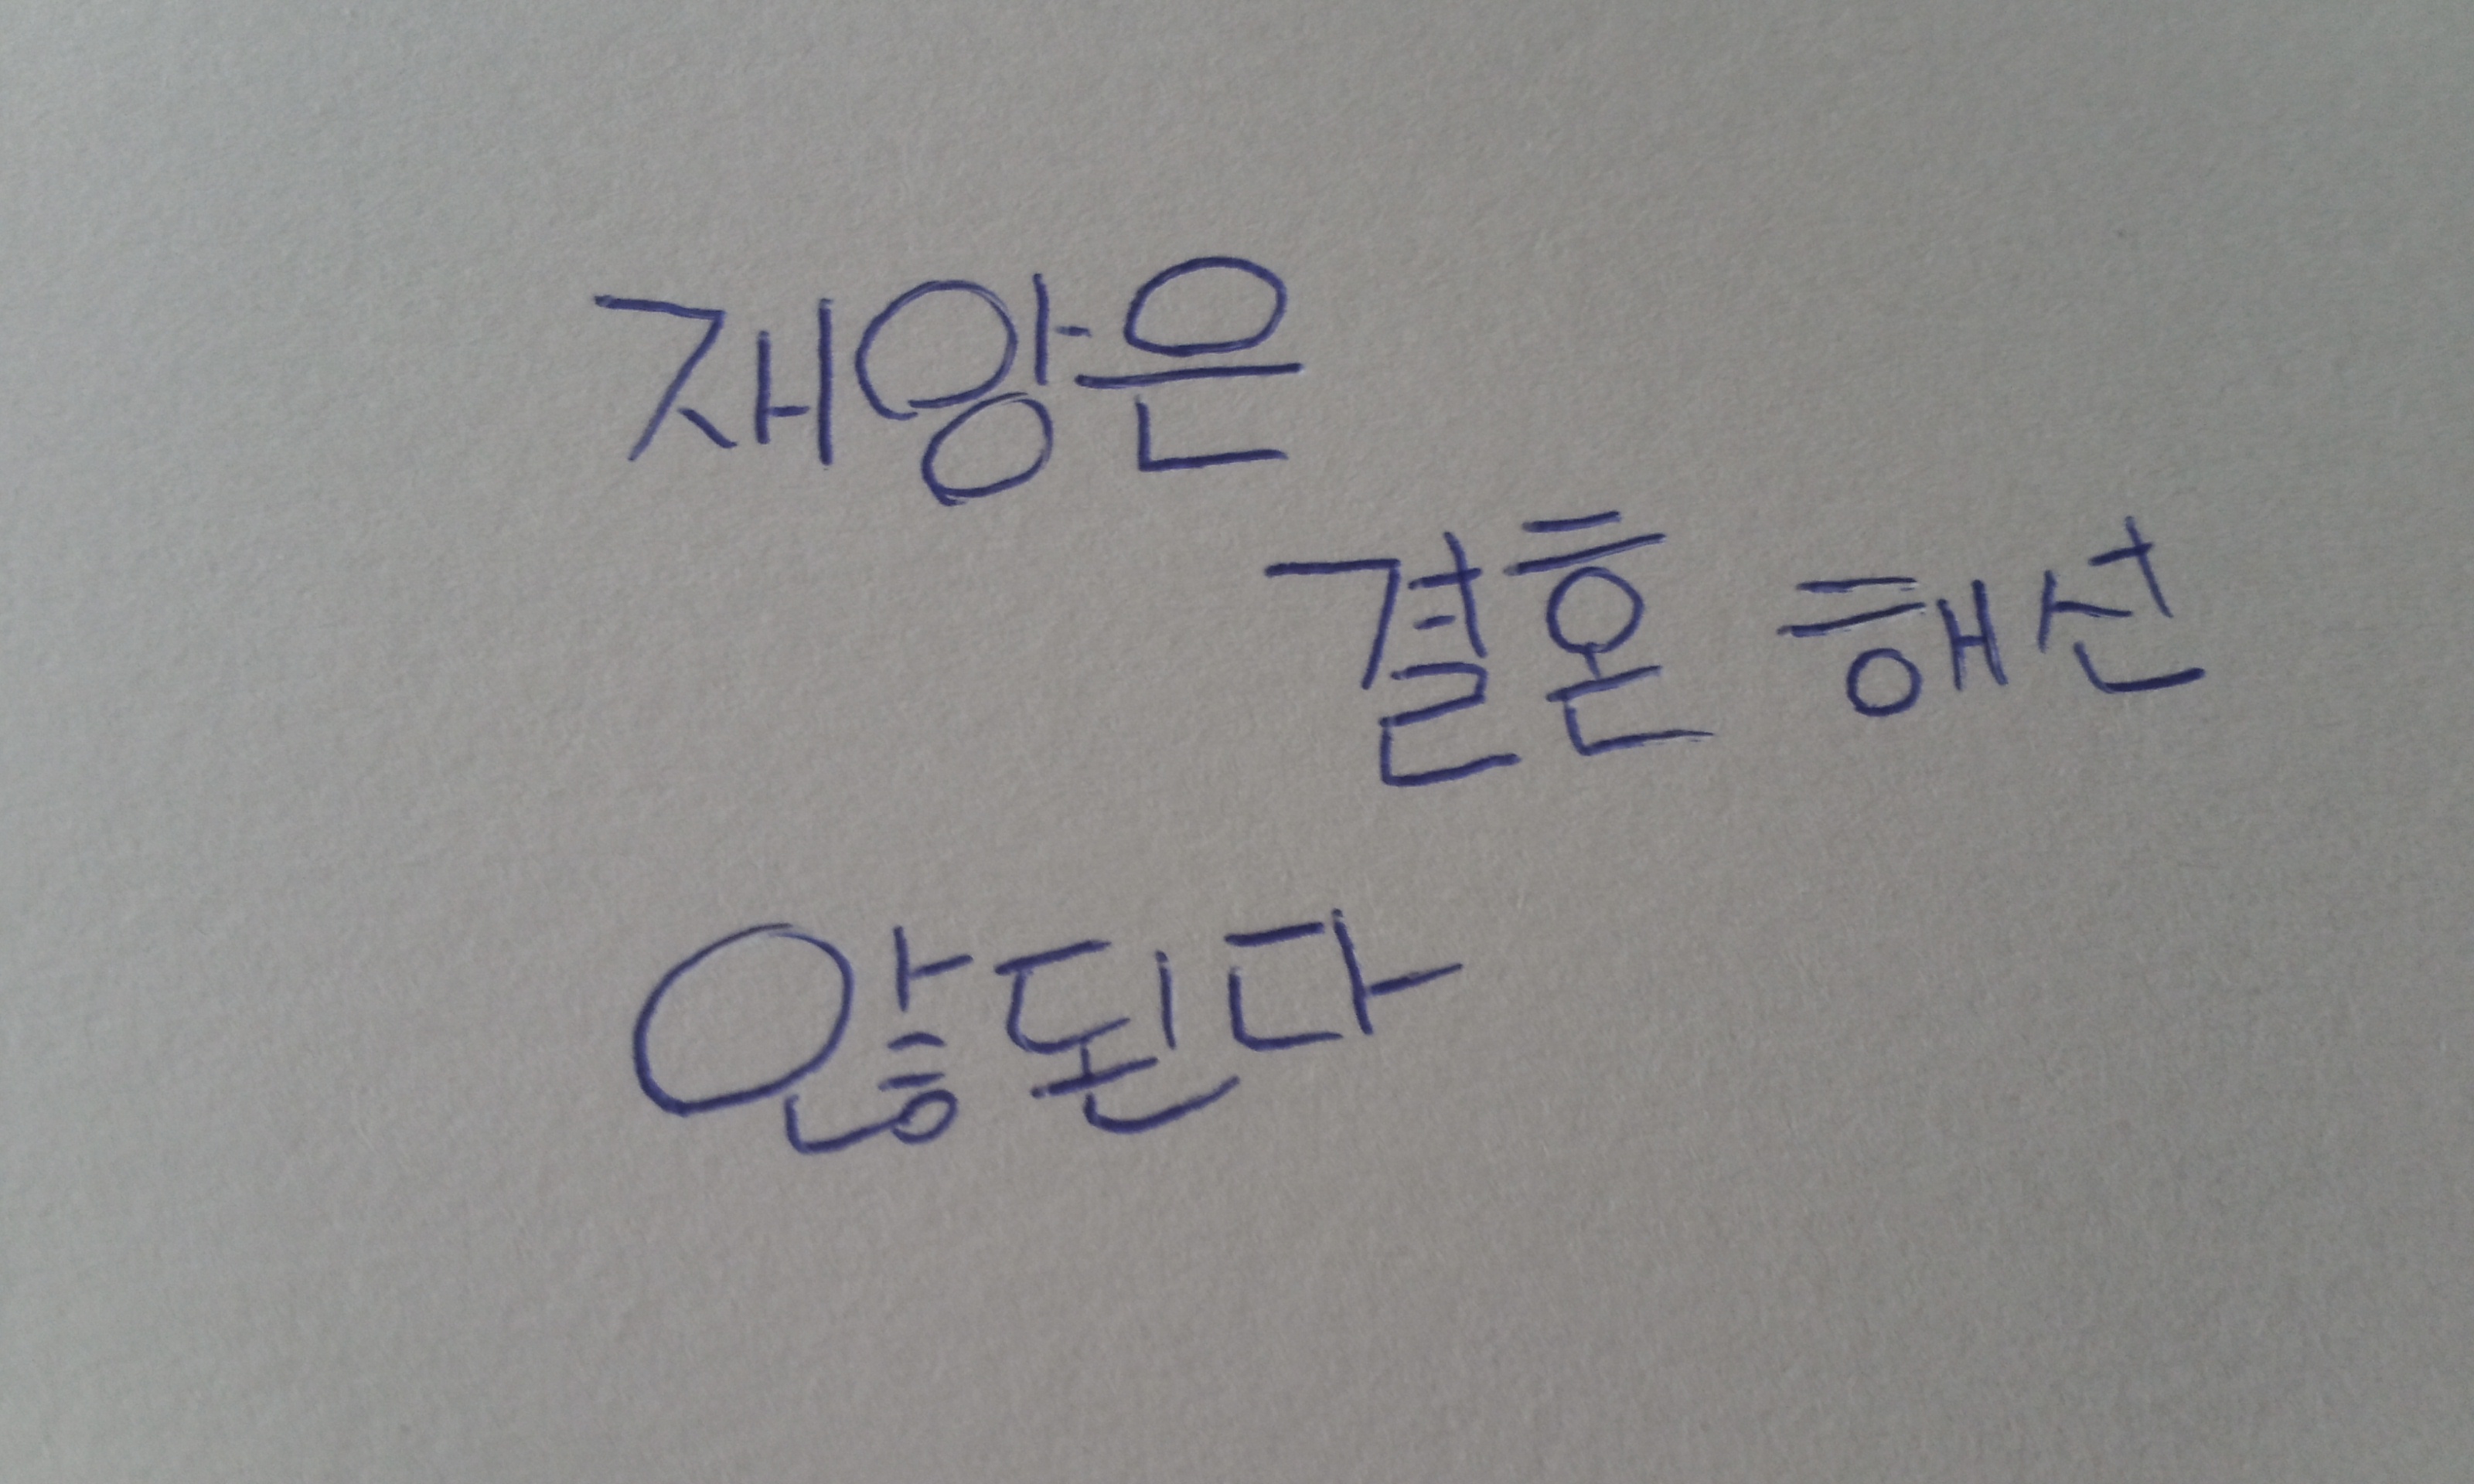 재앙은
결혼 해선
않된다